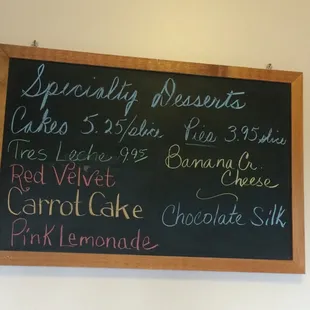 Specialty Desserts
Cakes 5.25/slice
Tres Leche 9.95
Red Velvet
Carrot Cake
Pink Lemonade
Pies 3.95 slice
Banana Cr.
Cheese
Chocolate Silk